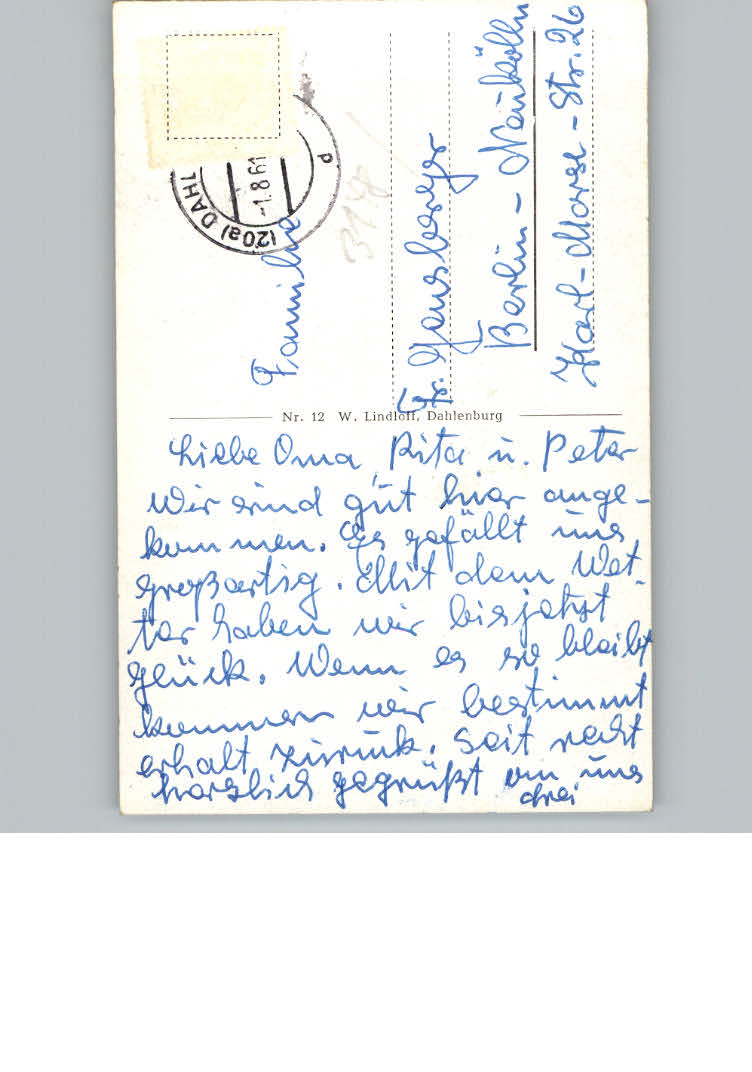 (20a) DAHL
-1.8.61
d
318
Familie
Fr. Gansberger
Berlin - Neukölln
Karl-Marx-Str. 26
Nr. 12 W. Lindloff, Dahlenburg
Liebe Oma, Rita u. Peter
Wir sind gut hier ange-
kommen. Es gefällt uns
großartig. Mit dem Wet-
ter haben wir bis jetzt
glück. Wenn es so bleibt
kommen wir bestimmt
erholt zurück. Seit recht
herzlich gegrüßt von uns
drei